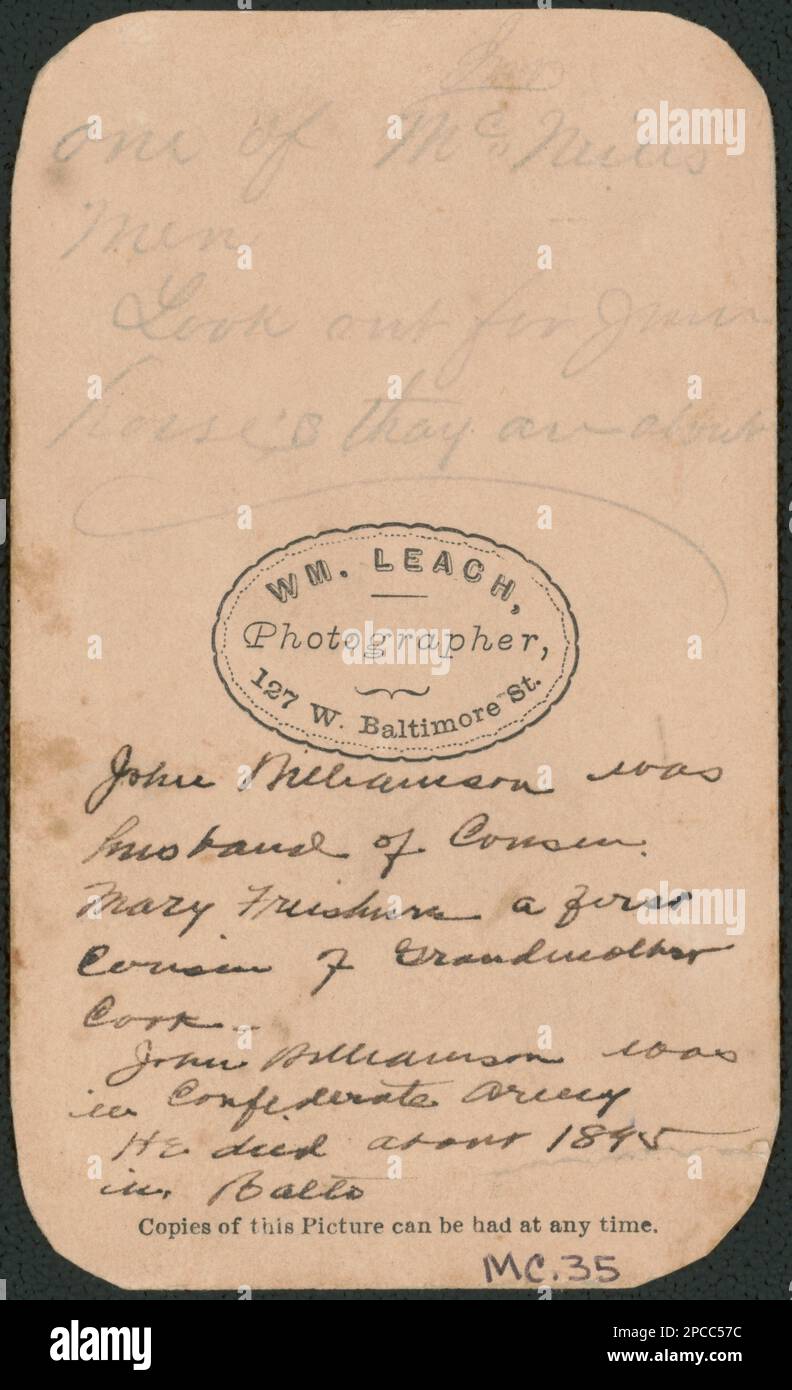 one of Mc. Neills
Men
Look out for your
horse's thay are about
WM. LEACH,
Photographer,
127 W. Baltimore St.
John Williamson was
husband of Cousin
Mary Frieshurn a first
Cousin of Grandmother
Cook.
John Williamson was
in Confederate Army
He died about 1895
in Balto
Copies of this Picture can be had at any time.
MC.35
alamy
Image ID: 2PCC57C
www.alamy.com